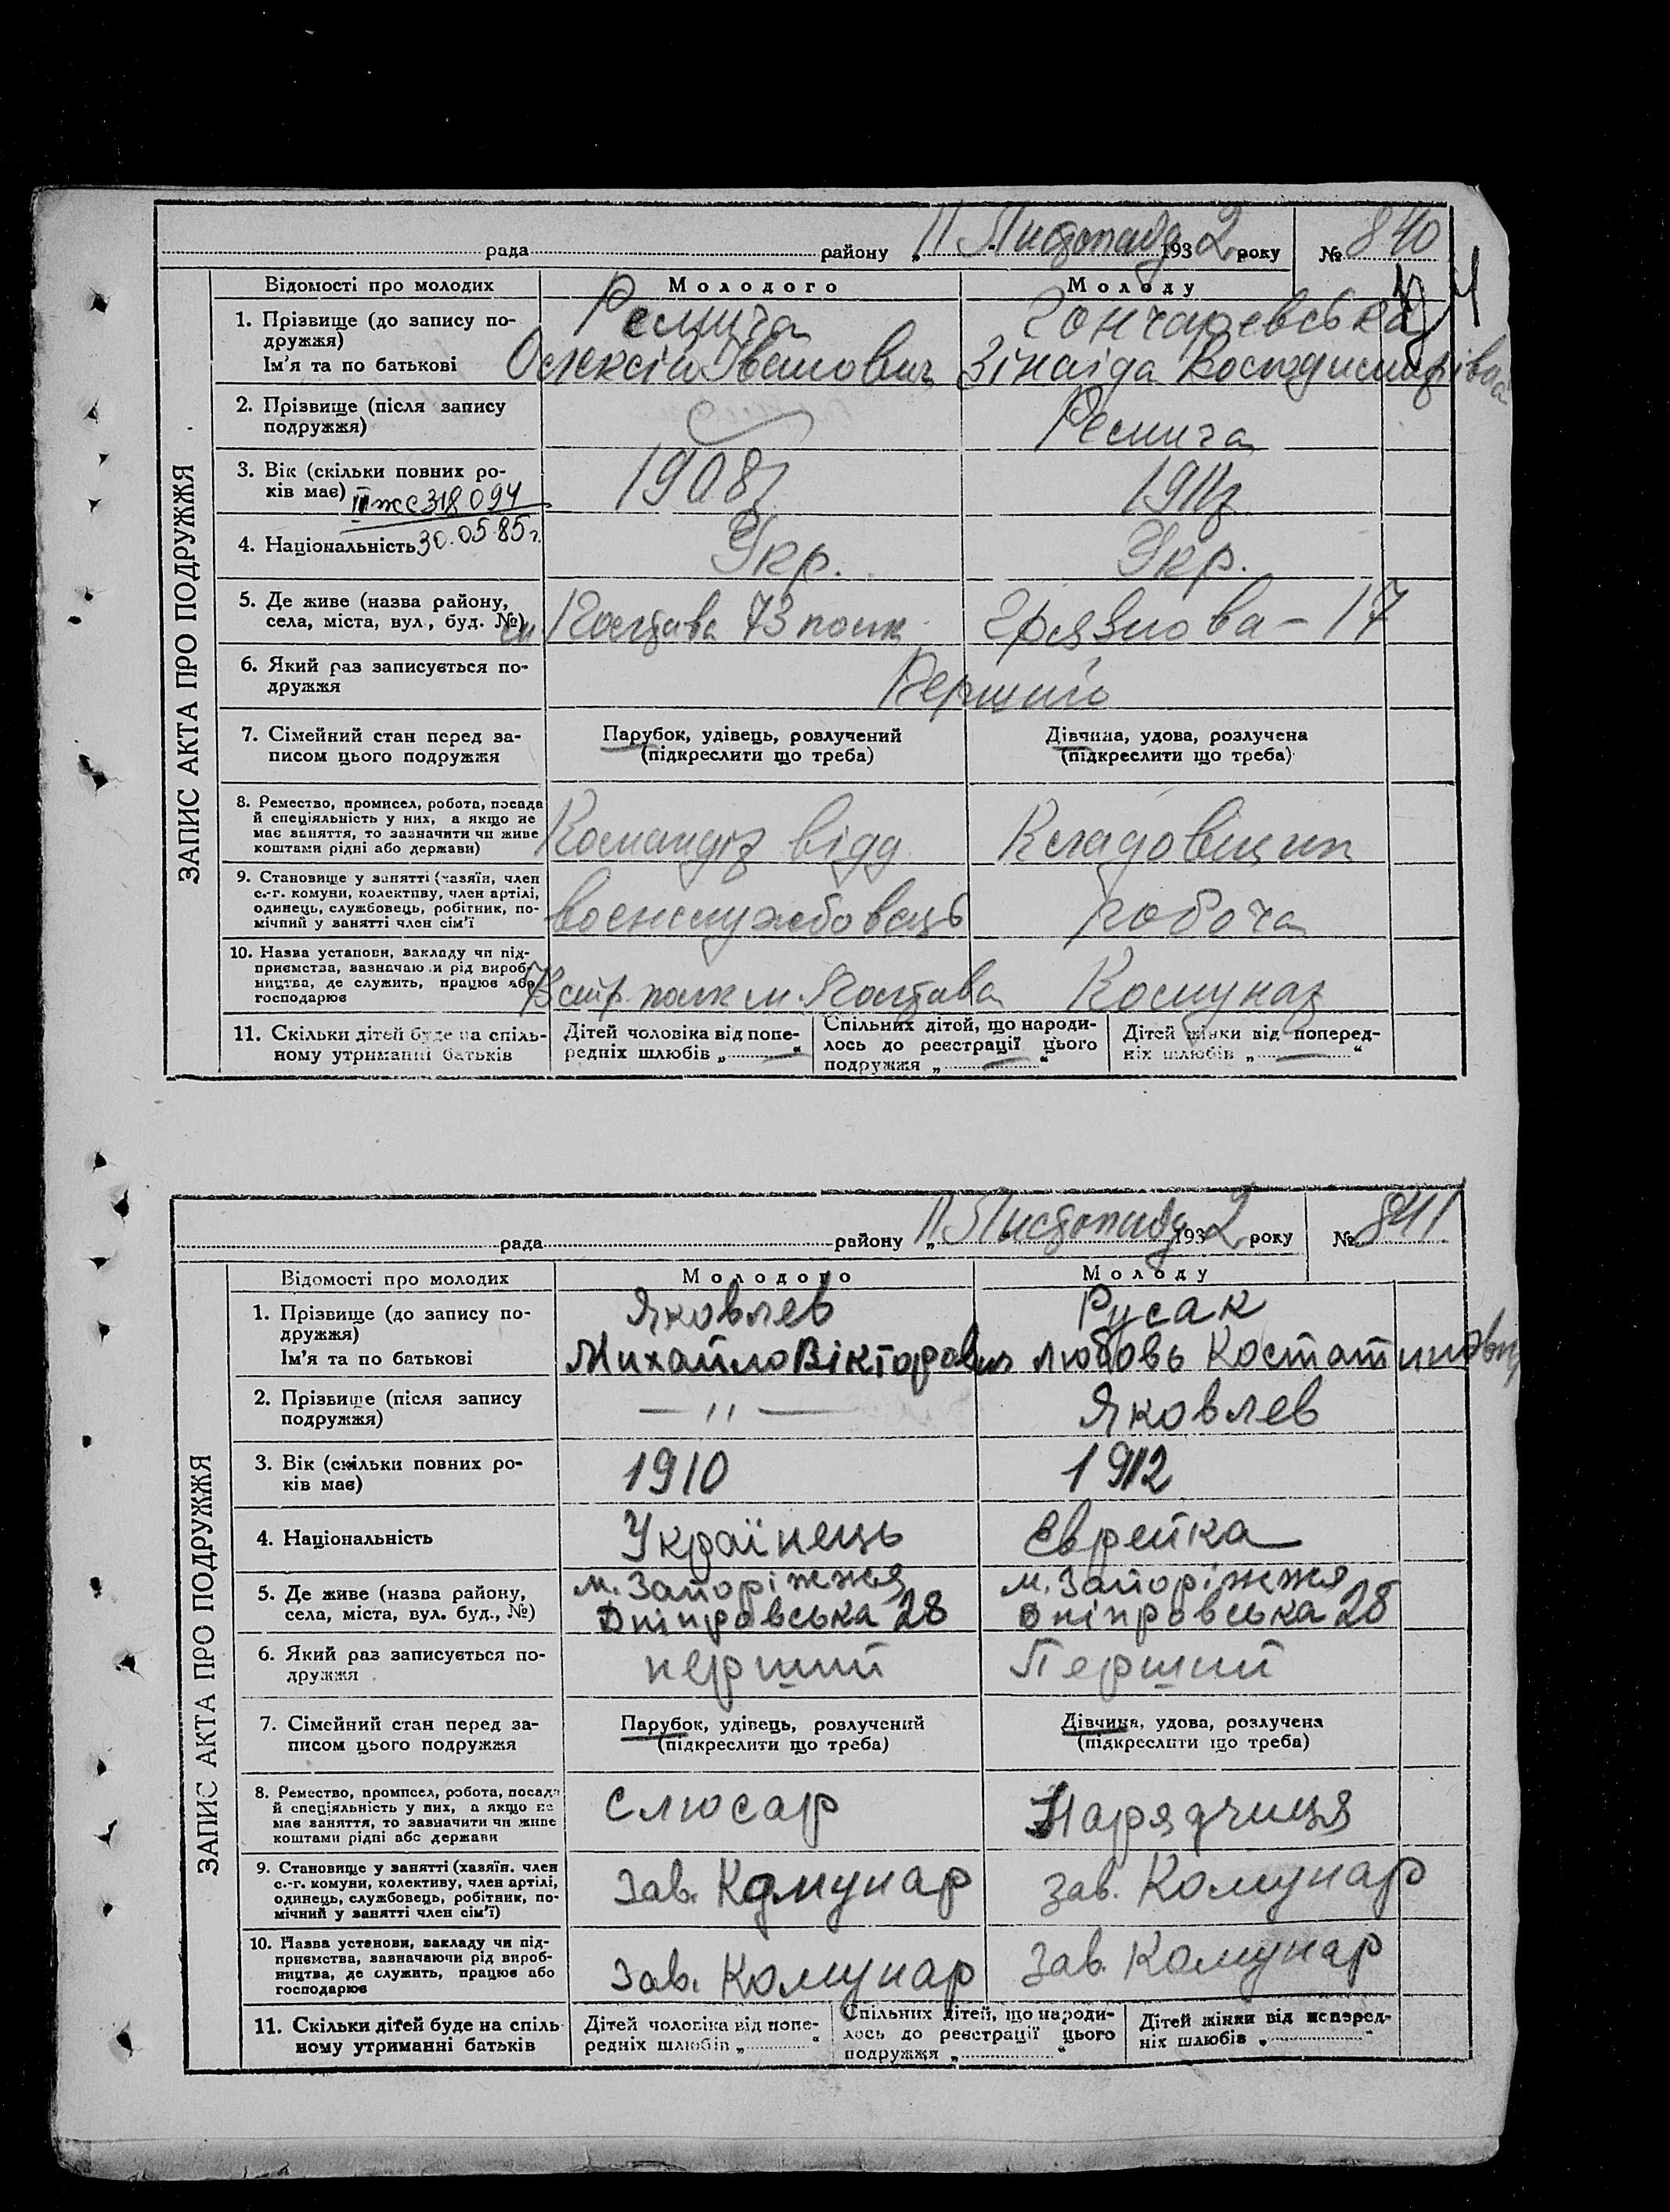 рада району „ 11 Листопада 1932 року № 840
ЗАПИС АКТА ПРО ПОДРУЖЖЯ
Відомості про молодих Молодого Молоду
1. Прізвище (до запису по-
дружжя) Гончаревська
Ім'я та по батькові Олексій Іванович Зінаіда
2. Прізвище (після запису
подружжя)
3. Вік (скільки повних ро-
ків має) II жс 318094 1908
30.05.85г.
4. Національність Укр. Укр.
5. Де живе (назва району,
села, міста, вул., буд. №) м. Полтава 73 полк Грязнова - 17
6. Який раз записується по-
дружжя Перший
7. Сімейний стан перед за-
писом цього подружжя
Парубок, удівець, розлучений
(підкреслити що треба)
Дівчина, удова, розлучена
(підкреслити що треба)
8. Ремество, промисел, робота, посада
й спеціяльність у них, а якщо не
має заняття, то зазначити чи живе
коштами рідні або держави)
Командір відд. Кладовщик
9. Становище у занятті (хазяїн, член
с.-г. комуни, колективу, член артілі,
одинець, службовець, робітник, по-
мічний у занятті член сім'ї
воєнслужбовець робоча
10. Назва установи, закладу чи під-
приємства, зазначаючи рід вироб-
ництва, де служить, працює або
господарює
73 стр. полк м. Полтава Комунар
11. Скільки дітей буде на спіль-
ному утриманні батьків
Дітей чоловіка від попе-
редніх шлюбів „ — “
Спільних дітей, що народи-
лось до реєстрації цього
подружжя „ — “
Дітей жінки від поперед-
ніх шлюбів „ — “
рада району „ 11 Листопада 1932 року № 841
ЗАПИС АКТА ПРО ПОДРУЖЖЯ
Відомості про молодих Молодого Молоду
1. Прізвище (до запису по-
дружжя) Яковлев Русак
Ім'я та по батькові Михайло Вікторович Любовь
2. Прізвище (після запису
подружжя) — " — Яковлев
3. Вік (скільки повних ро-
ків має) 1910 1912
4. Національність Українець Єврейка
5. Де живе (назва району,
села, міста, вул. буд., №)
м. Запоріжжя м. Запоріжжя
Дніпровська 28 Дніпровська 28
6. Який раз записується по-
дружжя перший Перший
7. Сімейний стан перед за-
писом цього подружжя
Парубок, удівець, розлучений
(підкреслити що треба)
Дівчина, удова, розлучена
(підкреслити що треба)
8. Ремество, промисел, робота, посада
й спеціяльність у них, а якщо не
має заняття, то зазначити чи живе
коштами рідні або держави
Слюсар Нарядчиця
9. Становище у занятті (хазяїн. член
с.-г. комуни, колективу, член артілі,
одинець, службовець, робітник, по-
мічний у занятті член сім'ї)
Зав. Комунар Зав. Комунар
10. Назва установи, закладу чи під-
приємства, зазначаючи рід вироб-
ництва, де служить, працює або
господарює
Зав. Комунар Зав. Комунар
11. Скільки дітей буде на спіль-
ному утриманні батьків
Дітей чоловіка від попе-
редніх шлюбів „ “
Спільних дітей, що народи-
лось до реєстрації цього
подружжя „ “
Дітей жінки від поперед-
ніх шлюбів „ “